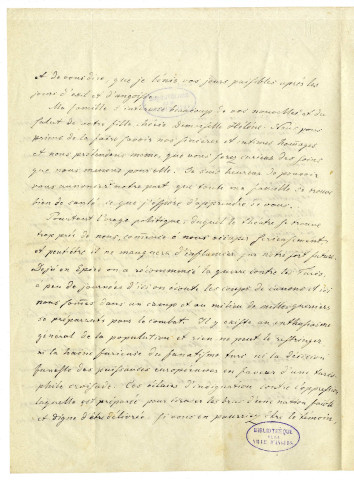 et de vous dire, que je bénis vos jours paisibles après les
jours d'exil et d'angoisse.
Ma famille s'intéresse beaucoup de vos nouvelles et du
salut de votre fille chérie Demoiselle Hélène. Nous vous
prions de la faire savoir nos sincères et intimes hommages
et nous prétendons même, que nous sommes des soins
que nous menons pour elle. Je suis heureux de pouvoir
vous annoncer de notre part que toute ma famille se trouve
bien de santé, ce que j'espère d'apprendre de vous.
Pourtant l'orage politique, duquel le théâtre se trouve
trop près de nous, commence à nous occuper sérieusement
et peut-être il ne manquera d'influencer sur notre sort futur.
Déjà en Épire on a recommencé la guerre contre les Turcs,
a peu de journées d'ici on écoute les coups de canons et ici
nous sommes dans un camp et au milieu de mille guerriers
se préparants pour le combat. Il y existe un enthousiasme
général de la population et rien ne peut le
ni la haine furieuse du fanatisme turc, ni la décision
funeste des puissances européennes en faveur d'une turco-
phile croisade. Ces éclairs d'indignation contre l'oppression
laquelle est préparée pour écraser les droits d'une nation faible
et digne d'être délivrée. Si vous en pourriez être le témoin
BIBLIOTHÈQUE
DE LA
VILLE D'ANGERS